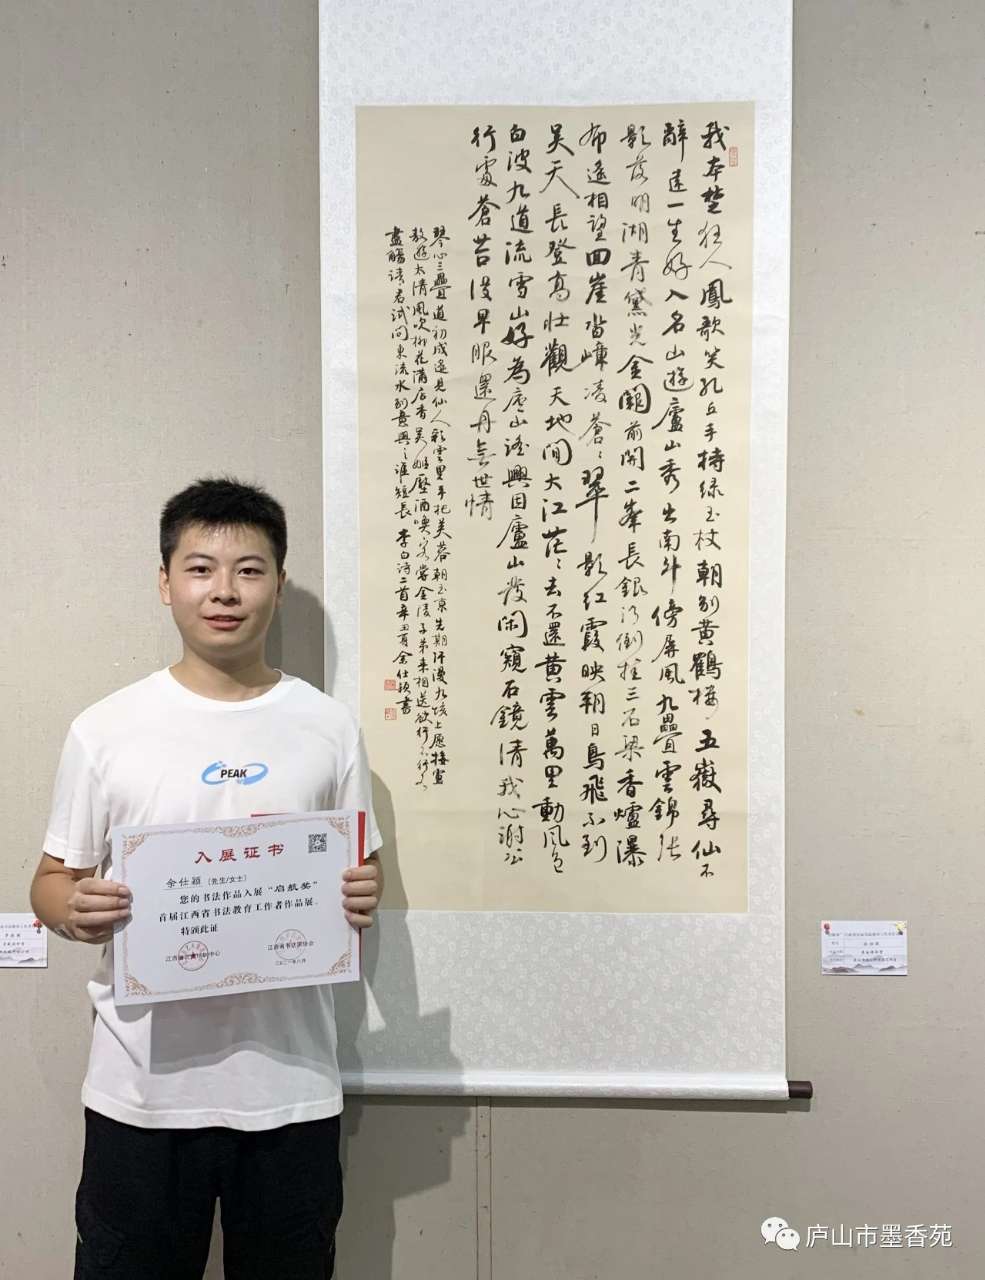 我本楚狂人鳳歌笑孔丘手持绿玉杖朝别黄鶴楼五嶽尋仙不
辭遠一生好入名山遊廬山秀出南斗傍屏風九疊雲錦張
影落明湖青黛光金闕前開二峯長銀河倒挂三石梁香爐瀑
布遥相望回崖沓嶂凌蒼〻翠影红霞映朝日鳥飛不到
吴天長登高壮觀天地间大江茫〻去不還黄雲萬里動風色
白波九道流雪山好為廬山謠興因廬山發闲窺石鏡清我心謝公
行處蒼苔没早服還丹無世情
琴心三疊道初成遥見仙人彩雲里手把芙蓉朝玉京先期汗漫九垓上愿接盧
敖遊太清風吹柳花滿店香吴姬壓酒唤客嘗金陵子弟来相送欲行不行各
盡觴请君试问東流水别意與之谁短長 李白诗二首辛丑夏余仕颖書
PEAK
入展证书
余仕颖 (先生/女士)
您的书法作品入展“启航奖”
首届江西省书法教育工作者作品展。
特颁此证
江西省书法家协会
二〇二一年八月
庐山市墨香苑